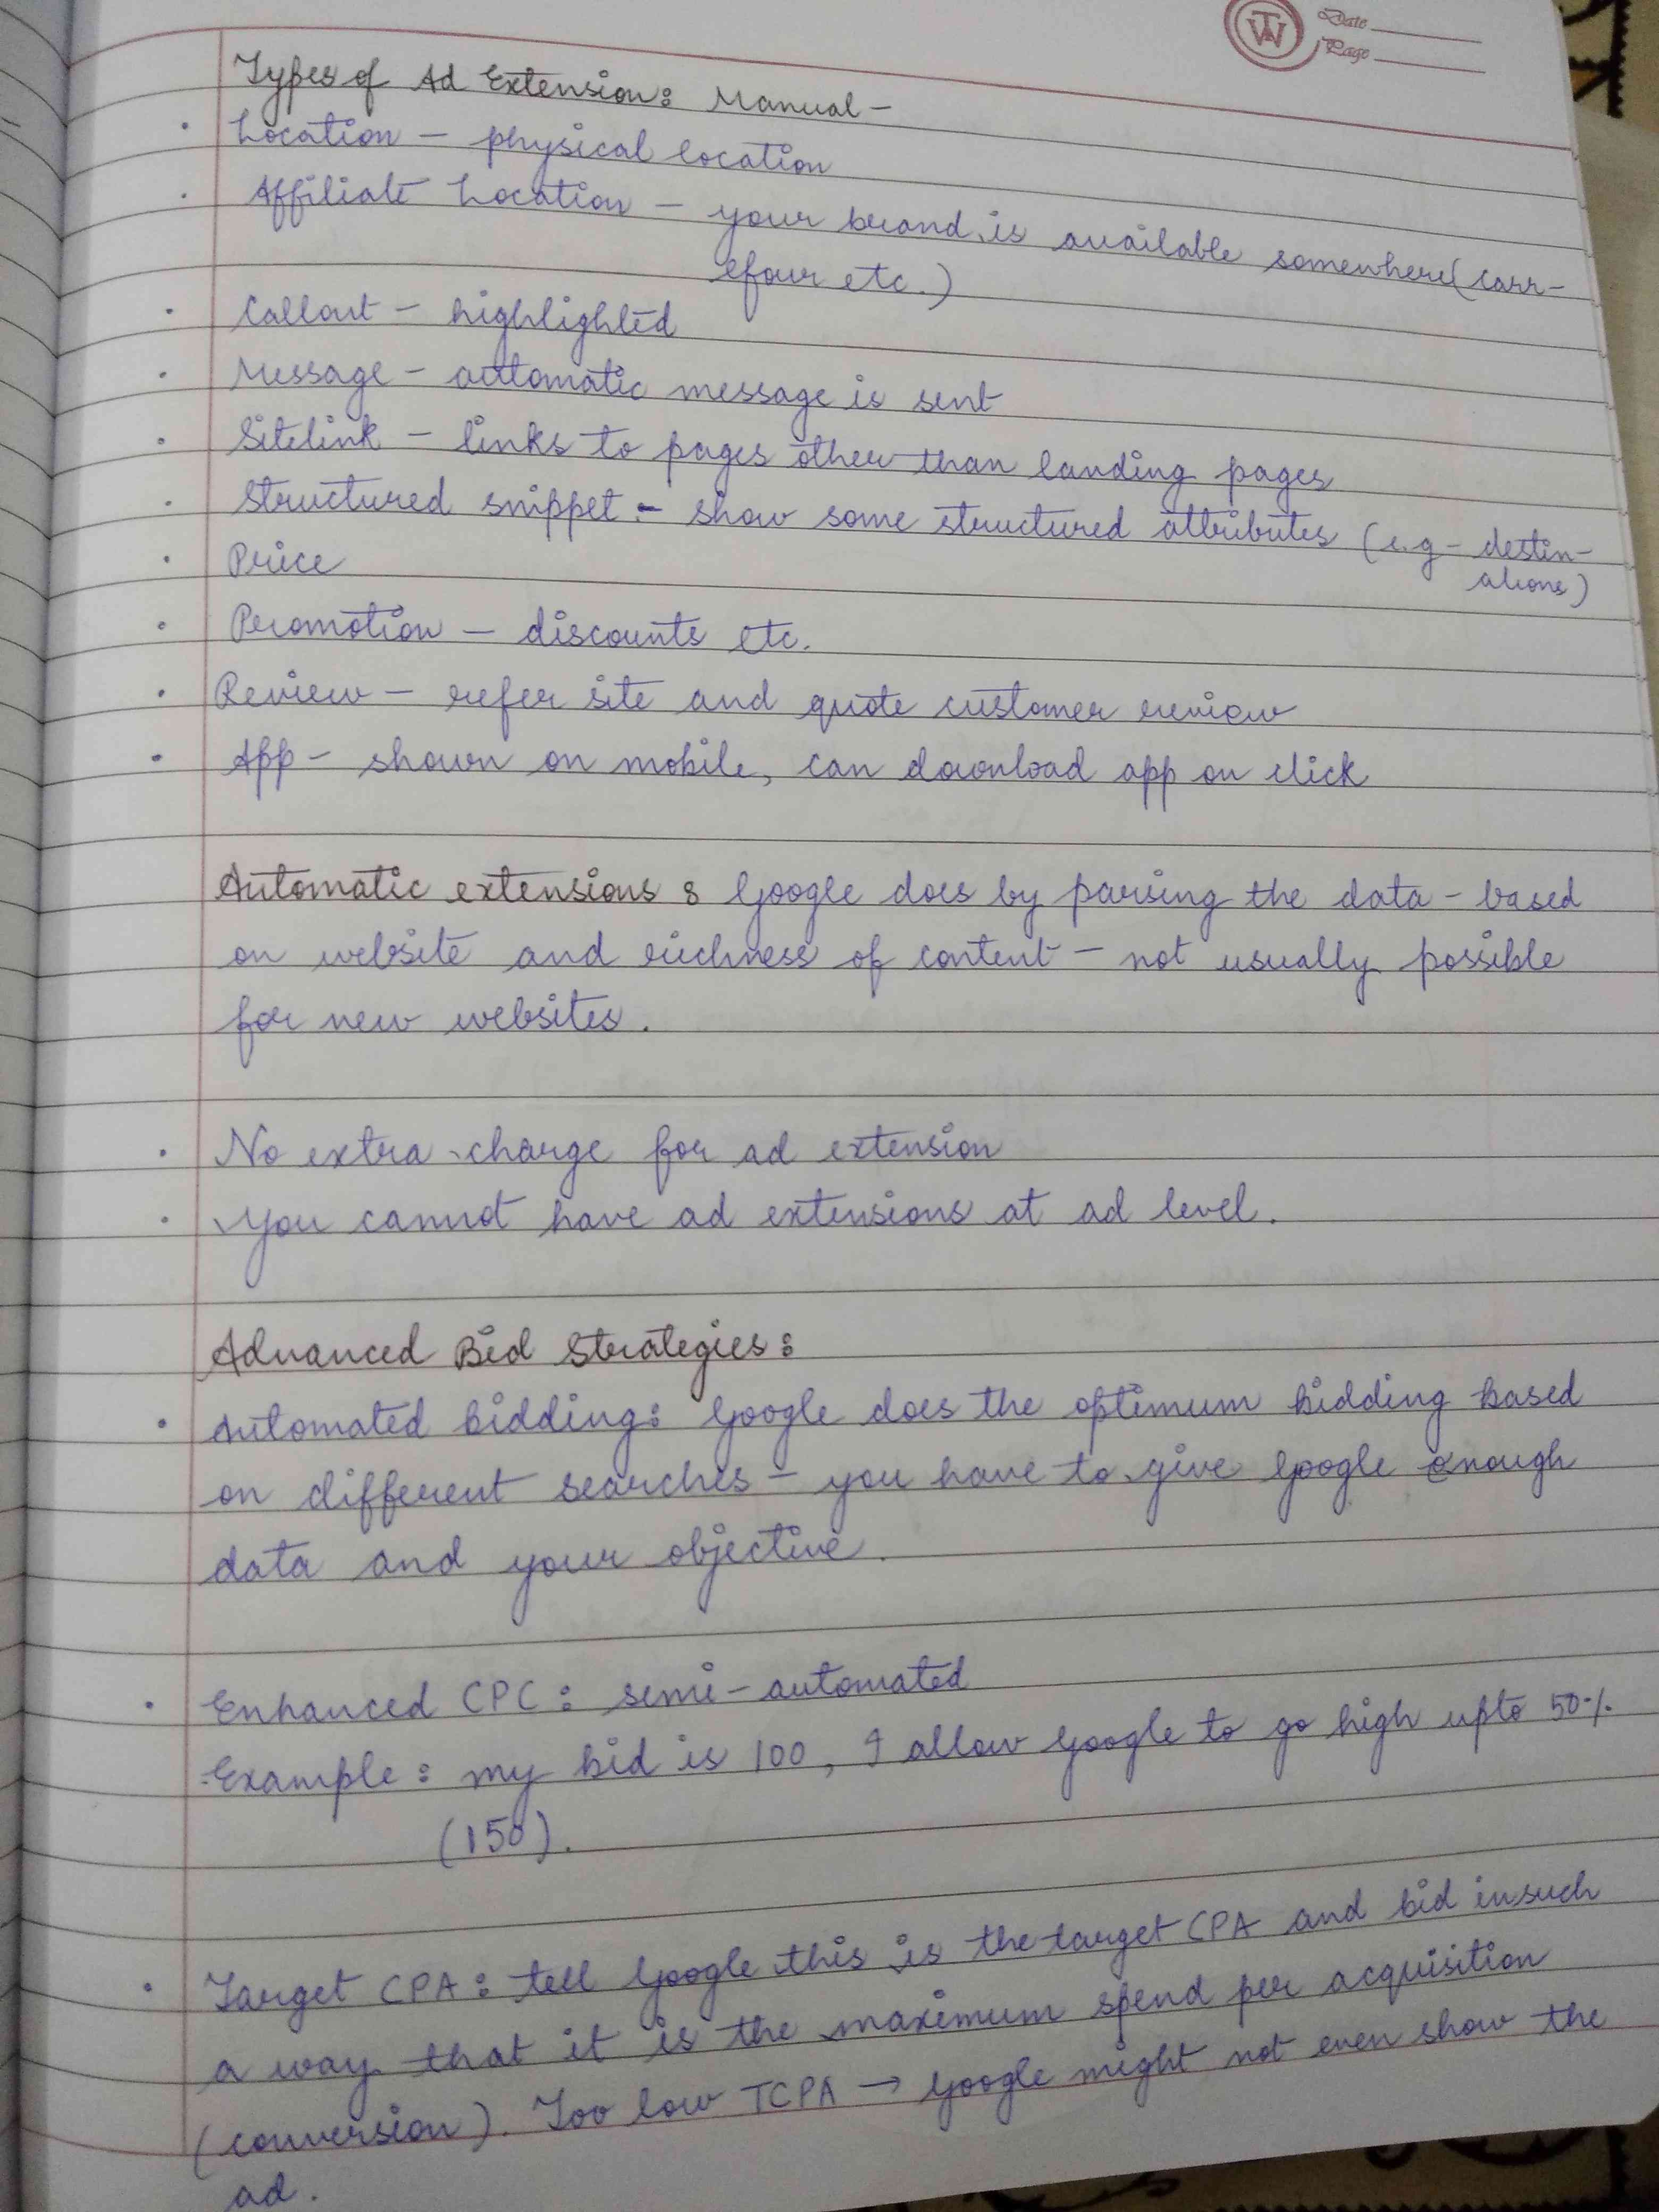 Date
Page
Types of Ad Extension: Manual -
• Location - physical location
• Affiliate Location - your brand is available somewhere (carr-
efour etc.)
• Callout - highlighted
• Message - automatic message is sent
• Sitelink - links to pages other than landing pages
• Structured snippet - show some structured attributes (e.g - destin-
ations)
• Price
• Promotion - discounts etc.
• Review - refer site and quote customer review
• App - shown on mobile, can download app on click
Automatic extensions : Google does by parsing the data - based
on website and richness of content - not usually possible
for new websites.
• No extra charge for ad extension
• You cannot have ad extensions at ad level.
Advanced Bid Strategies :
• Automated bidding : Google does the optimum bidding based
on different searches - you have to give Google enough
data and your objective.
• Enhanced CPC : semi-automated
Example : my bid is 100, I allow Google to go high upto 50%
(150).
• Target CPA : tell Google this is the target CPA and bid in such
a way that it is the maximum spend per acquisition
(conversion). Too low TCPA → Google might not even show the
ad.